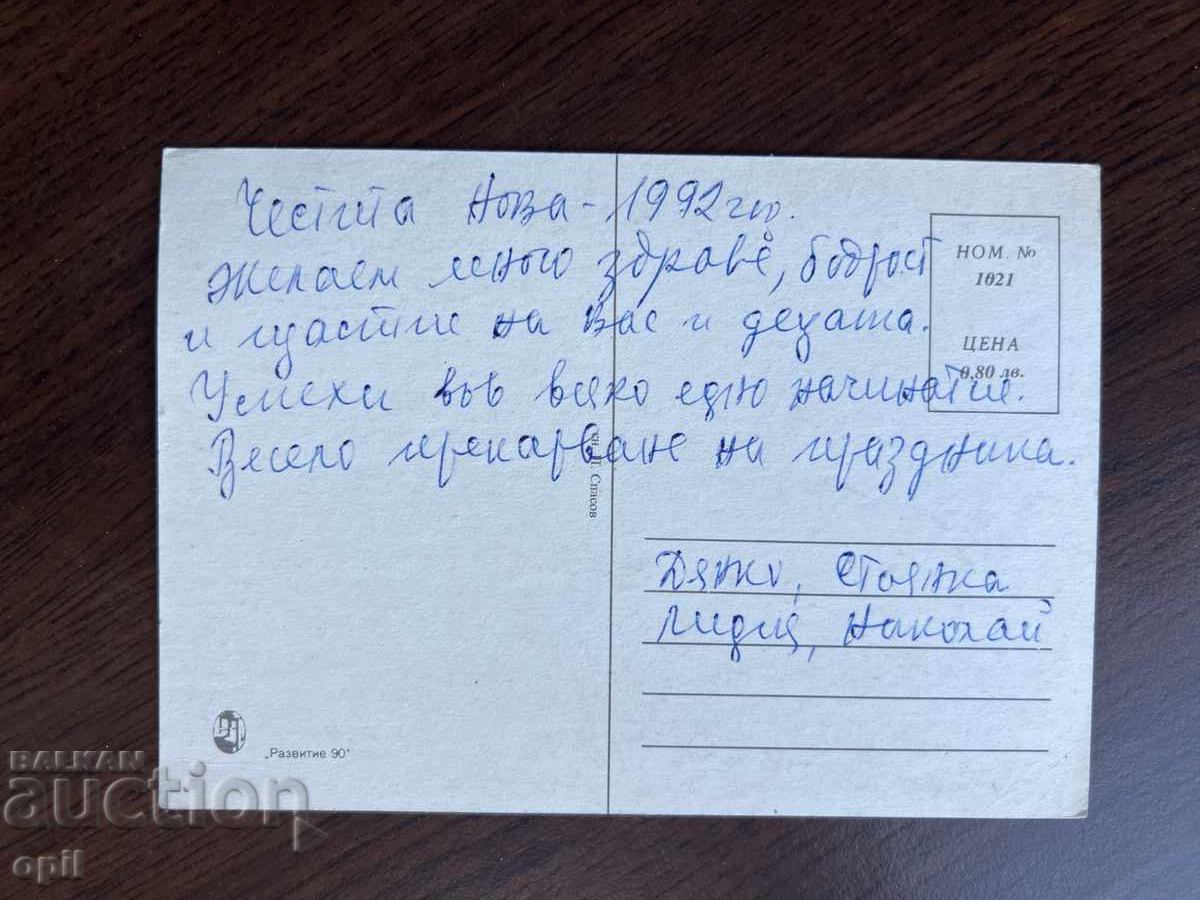 Честита Нова - 1992 год.
Желаем много здраве, бодрост
и щастие на Вас и децата.
Успехи във всяко едно начинание.
Весело прекарване на празника.
НОМ. №
1021
ЦЕНА
0,80 лв.
Спасов
Дянко, Стоянка
Лидия, Николай
„Развитие 90"
BALKAN
auction
opil